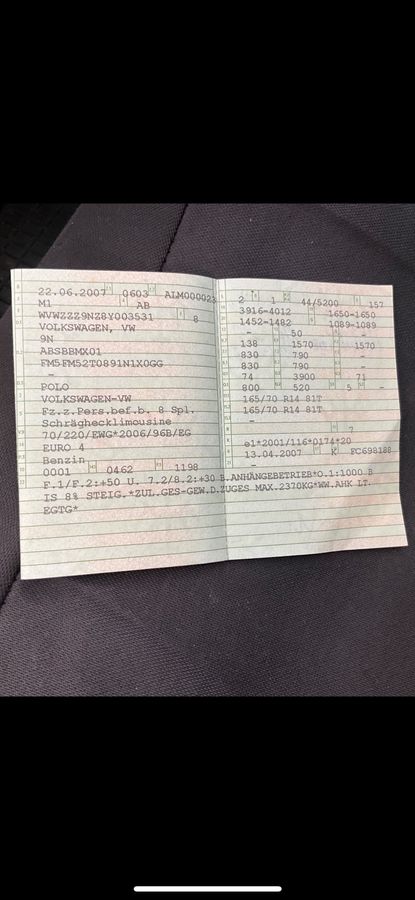 22.06.2007 0603 ALM000023
M1 AB
WVWZZZ9NZ8Y003531 8
VOLKSWAGEN, VW
9N
ABSBBMX01
FM5FM52T0891N1X0GG
–
POLO
VOLKSWAGEN-VW
Fz.z.Pers.bef.b. 8 Spl.
Schräghecklimousine
70/220/EWG*2006/96B/EG
EURO 4
Benzin
0001 0462 1198
2 1 44/5200 157
3916-4012 1650-1650
1452-1482 1089-1089
– 50 – –
138 1570 1570
830 790 –
830 790 –
74 3900 71
800 520 5 –
165/70 R14 81T
165/70 R14 81T
–
7
e1*2001/116*0174*20
13.04.2007 K FC698188
–
F.1/F.2:+50 U. 7.2/8.2:+30 B.ANHÄNGEBETRIEB*O.1:1000 B
IS 8% STEIG.*ZUL.GES-GEW.D.ZUGES MAX.2370KG*WW.AHK LT.
EGTG*